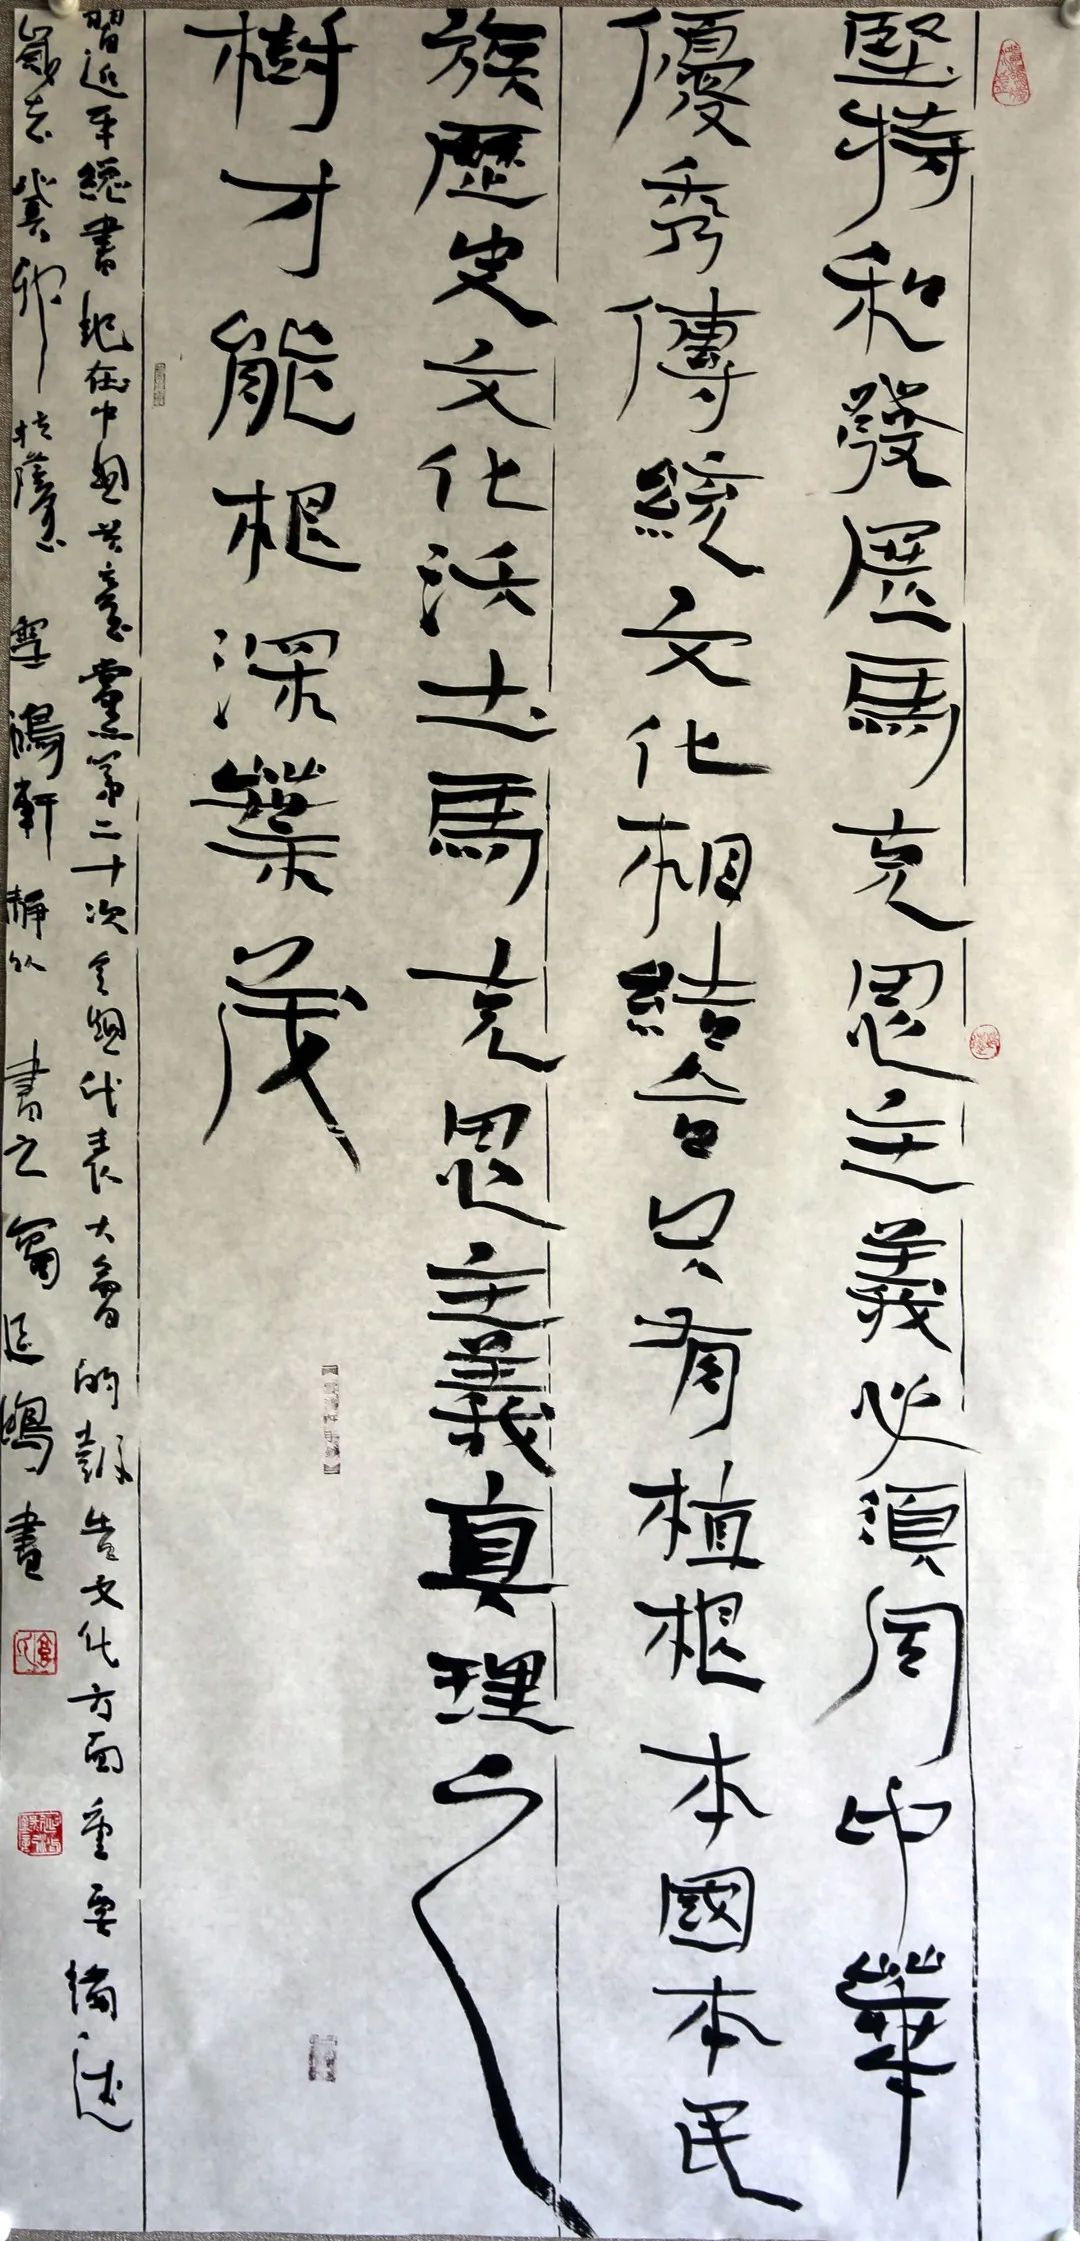 堅持和發展馬克思主義必須同中華
優秀傳統文化相結合只有植根本國本民
族歷史文化沃土馬克思主義真理之
樹才能根深葉茂
習近平總書記在中國共產黨第二十次全國代表大會的報告文化方面重要論述
歲在癸卯 於 鴻軒 靜 書之 鴻 書